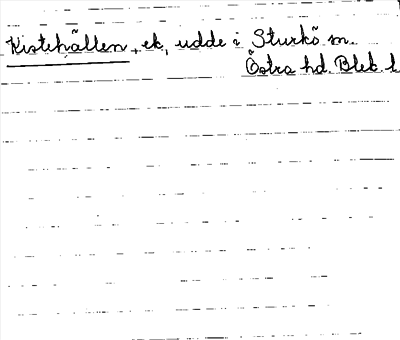 Kistehällen, ek, udde i Sturkö sn.
Östra hd. Blek. l